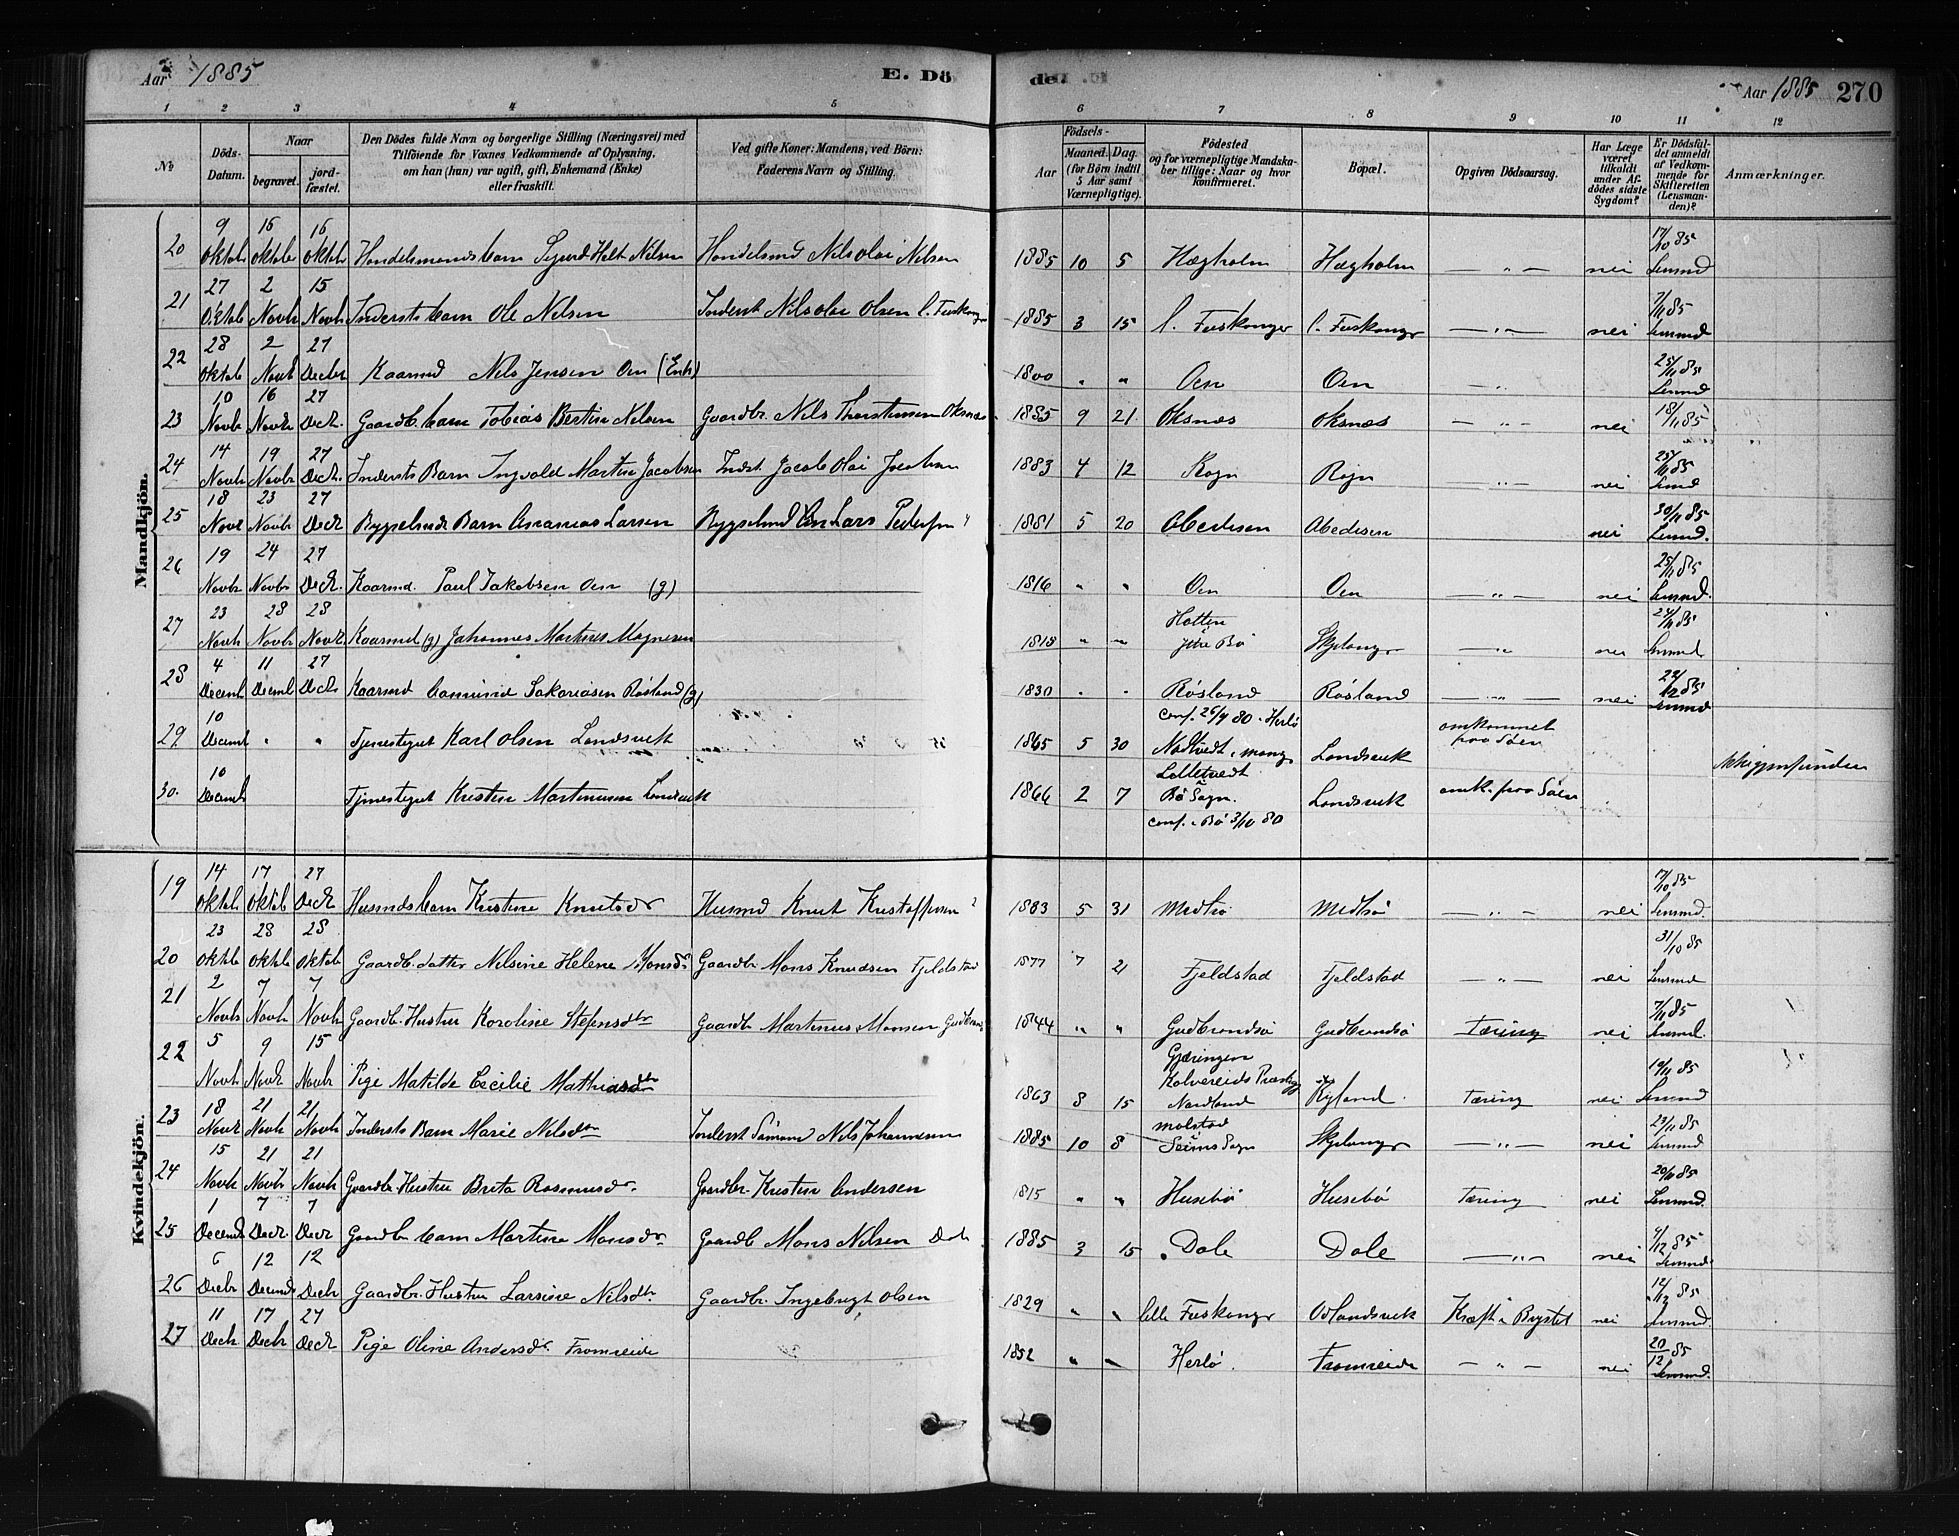 Aar 1885 E. Dö
de. Aar 1885 270
1 2 3 4 5 6 7 8 9 10 11 12
No
Döds-Datum.
Naar
begravet.
jord-fæstet.
Den Dödes fulde Navn og borgerlige Stilling (Næringsvei) med
Tilföiende for Voxnes Vedkommende af Oplysning,
om han (hun) var ugift, gift, Enkemand (Enke)
eller fraskilt.
Ved gifte Koner: Mandens, ved Börn:
Faderens Navn og Stilling.
Födsels-
Aar
Maaned. Dag.
(for Börn indtil
5 Aar samt
Værnepligtige).
Födested
og for værnepligtige Mandska-
ber tillige: Naar og hvor
konfirmeret.
Bopæl.
Opgiven Dödsaarsag.
Har Læge
været
tilkaldt
under Af-
dödes sidste
Sygdom?
Er Dödsfal-
det anmeldt
af Vedkom-
mende for
Skifteretten
(Lensman-
den)?
Anmærkninger.
Mandkjön.
20 9 Oktob 16 Oktob 16 Oktob Handelsmands barn Sjurd Holt Nilsen Handelsmd Nils Olai Nilsen 1885 10 5 Hægholm Hægholm — " — nei 17/10 85 Lensmd
21 27 Oktob 2 Novb 15 Novb Indersts barn Ole Nilsen Inderst Nils Olai Olsen l. Fuskanger 1885 3 15 l. Fuskanger l. Fuskanger — " — nei 7/11 85 Lensmd
22 28 Oktob 2 Novb 27 Decbr Kaarmd Nils Jensen Oen (Enk) 1800 " " Oen Oen " 25/11 85 Lensmd
23 10 Novb 16 Novb 27 Decb. Gaardb. barn Tobias Bertin Nilsen Gaardbr. Nils Thorstensen Oksnæs 1885 9 21 Oksnæs Oksnæs — " — nei 18/11 85
24 14 Novb 19 Novb 27 Decb. Indersts Barn Ingvald Martin Jacobsen Indst. Jacob Olai 1883 4 12 Rogn Rogn — " — nei 25/11 85 Lensmd
25 18 Novb 23 Novb 27 Decb Barn Ananias Larsen Lars Pedersen 1881 5 20 Abedisen Abedisen nei 30/11 85 Lensmd.
26 19 Novb 24 Novb 27 Decb. Kaarmd. Paul Jakobsen Oen (g) 1816 " " Oen Oen — " — nei 25/11 85 Lensmd.
27 23 Novb 28 Novb 28 Novb Kaarmd (g) Johannes Martinus Magnesen 1818 " " Holten Ytre Bö Skjelanger — " — nei 24/11 85 Lensmd
28 4 Decemb 11 Decemb 27 Decb Kaarmd Sakariasen Rösland (g) 1830 " " Rösland Rösland — " — nei 22/12 85 Lensmd
29 10 Decemb " " Tjenestegut Karl Olsen Landsvik 1865 5 30 conf. 25/4 80 i Herlö Nordtvedt i Mang Landsvik omkommet paa Söen
30. 10 Decemb Tjenestegut Kristen Martinusen Landsvik 1866 2 7 Bö Sogn. conf. i Bö 3/10 80 Landsvik omk. paa Söen
Kvindekjön.
19 14 Oktob 17 Oktob 27 Decb Husmds barn Kristine Knutsdr Husmd Knut Kristoffersen 1883 5 31 Medtsö Medtsö — " — nei 17/10 85 Lensmd.
20 23 Oktob 28 Oktob 28 Oktob Gaardb. datter Nilsine Helene Monsdr Gaardbr Mons Knudsen Fjeldstad 1877 7 21 Fjeldstad Fjeldstad — " — nei 31/10 85 Lensmd
21 2 Novb 7 Novb 7 Novb Gaardb. Hustru Karoline Stefensdtr Gaardbr Martinus Monsen 1844 " " Gudbrandsö Gudbrandsö Tæring nei 7/11 85 Lensmd.
22 5 Novb 9 Novb 15 Novbr Pige Matilde Cecilie Mathiasdtr 1863 8 15 Gjæringen Kolvereids Præstg Nordland Ryland. Tæring nei 10/11 85 Lensmd
23 18 Novb 21 Novb 21 Novb Indersts Barn Marie Nilsdtr Inderst Sömand Nils Johannesen 1885 10 8 Molstad Seims Sogn Skjelanger — " — nei 23/11 85 Lensmd
24 15 Novb 21 Novbr 21 Novb Gaardbr. Hustru Brita Rasmusdr. Gaardbr. Kristen Andersen 1815 " " Husebö Husebö Tæring nei 20/11 85 Lensmd.
25 1 Decemb 7 Decb. 7 Decb Gaardbr barn Martine Monsdr Gaardb Mons Nilsen Dale 1885 3 15 Dale Dale — " — nei 4/12 85 Lensmd.
26 6 Decbr 12 Decemb 12 Decbr Gaardbr. Hustru Larsine Nilsdtr. Gaardbr. Ingebrigt Olsen 1829 " " lille Fuskanger Odlandsvik Kræft i Brystet nei 12/12 85 Lensmd.
27 11 Decb. 17 Decbr 27 Decb Pige Oline Andersdr. Fromreide 1852 " " Herlö. Fromreide — " — nei 20/12 85 Lensmd.